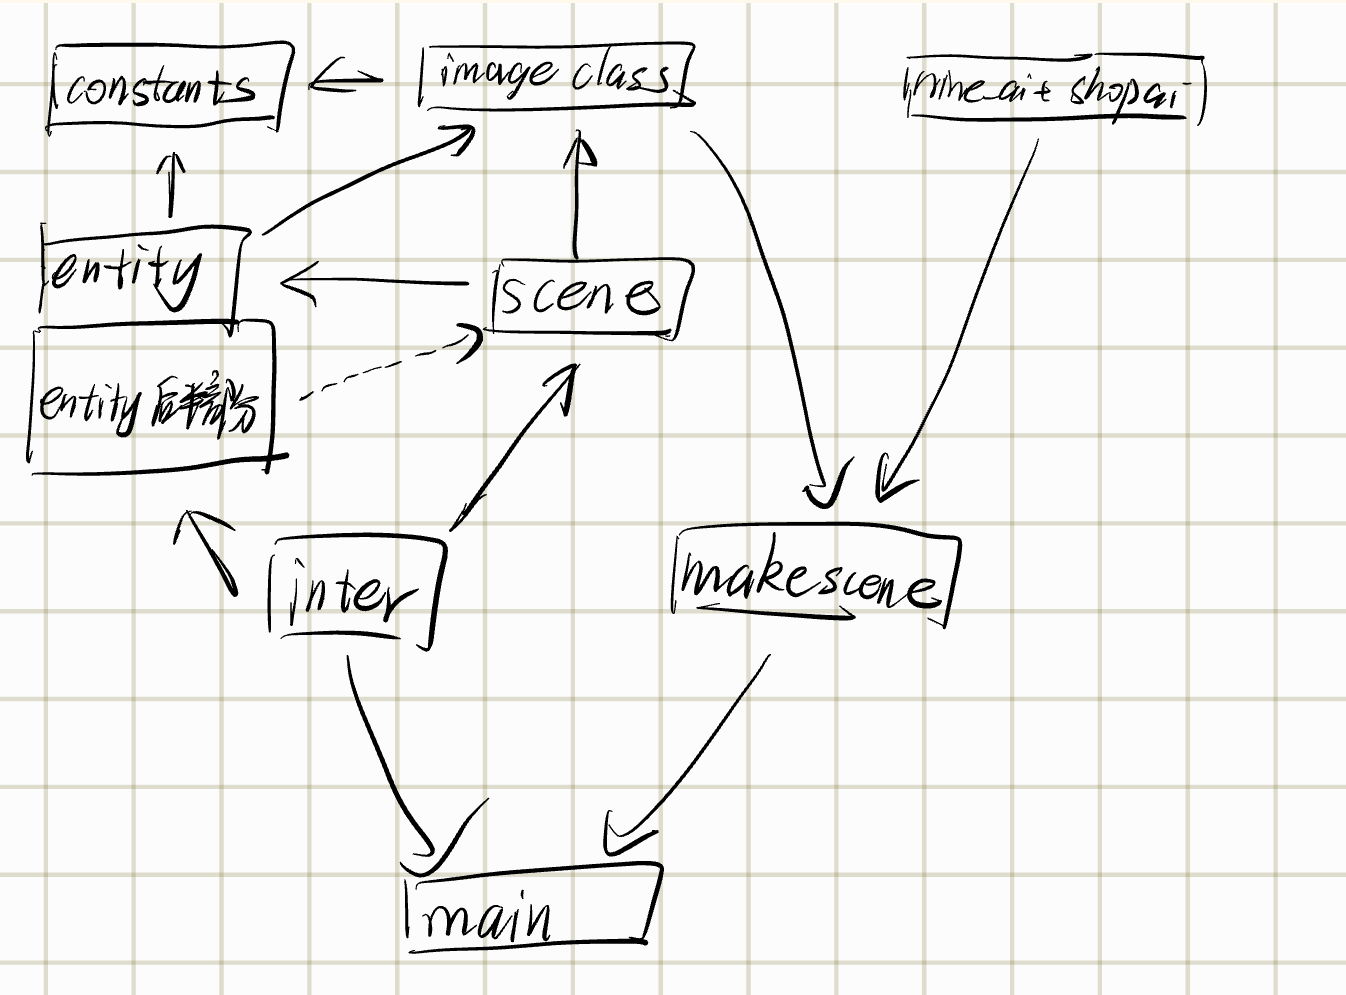 constants
image class
mine_ai + shopai
entity
scene
entity 后半部分
inter
makescene
main